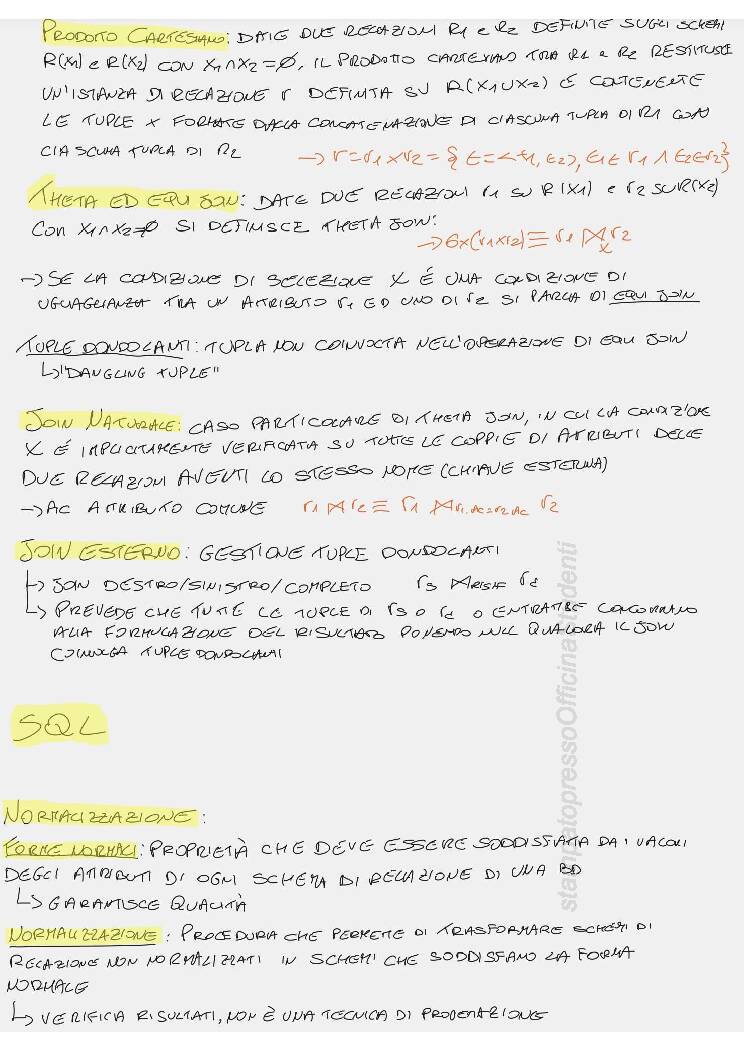 PRODOTTO CARTESIANO: DATE DUE RELAZIONI R1 e R2 DEFINITE SUGLI SCHEMI
R(X1) e R(X2) CON X1∩X2=∅, IL PRODOTTO CARTESIANO TRA R1 e R2 RESTITUISCE
UN'ISTANZA DI RELAZIONE r DEFINITA SU R(X1∪X2) É CONTENENTE
LE TUPLE X FORMATE DALLA CONCATENAZIONE DI CIASCUNA TUPLA DI R1 CON
CIASCUNA TUPLA DI R2
→ r=r1×r2={t=<t1,t2>, t1∈r1∧t2∈r2}
THETA ED EQUI JOIN: DATE DUE RELAZIONI r1 SU R(X1) e r2 SU R(X2)
CON X1∩X2=∅ SI DEFINISCE THETA JOIN:
→ σx(r1×r2)≡r1⋈x r2
→ SE LA CONDIZIONE DI SELEZIONE X É UNA CONDIZIONE DI
UGUAGLIANZA TRA UN ATTRIBUTO r1 ED UNO DI r2 SI PARLA DI EQUI JOIN
TUPLE DONDOLANTI: TUPLA NON COINVOLTA NELL'OPERAZIONE DI EQUI JOIN
↳"DANGLING TUPLE"
JOIN NATURALE: CASO PARTICOLARE DI THETA JOIN, IN CUI LA CONDIZIONE
X É IMPLICITAMENTE VERIFICATA SU TUTTE LE COPPIE DI ATTRIBUTI DELLE
DUE RELAZIONI AVENTI LO STESSO NOME (CHIAVE ESTERNA)
→ AC ATTRIBUTO COMUNE r1⋈r2≡r1⋈r1.AC=r2.AC r2
JOIN ESTERNO: GESTIONE TUPLE DONDOLANTI
↳ JOIN DESTRO/SINISTRO/COMPLETO rs ⋈ rd
↳ PREVEDE CHE TUTTE LE TUPLE DI rs O rd O ENTRAMBE CONCORRANO
ALLA FORMULAZIONE DEL RISULTATO PONENDO NULL QUALORA IL JOIN
COINVOLGA TUPLE DONDOLANTI
SQL
NORMALIZZAZIONE:
FORME NORMALI: PROPRIETÀ CHE DEVE ESSERE SODDISFATTA DAI VALORI
DEGLI ATTRIBUTI DI OGNI SCHEMA DI RELAZIONE DI UNA BD
↳ GARANTISCE QUALITÀ
NORMALIZZAZIONE: PROCEDURA CHE PERMETTE DI TRASFORMARE SCHEMI DI
RELAZIONE NON NORMALIZZATI IN SCHEMI CHE SODDISFANO LA FORMA
NORMALE
↳ VERIFICA RISULTATI, NON È UNA TECNICA DI PROGETTAZIONE
stampatopressoOfficinaStudenti